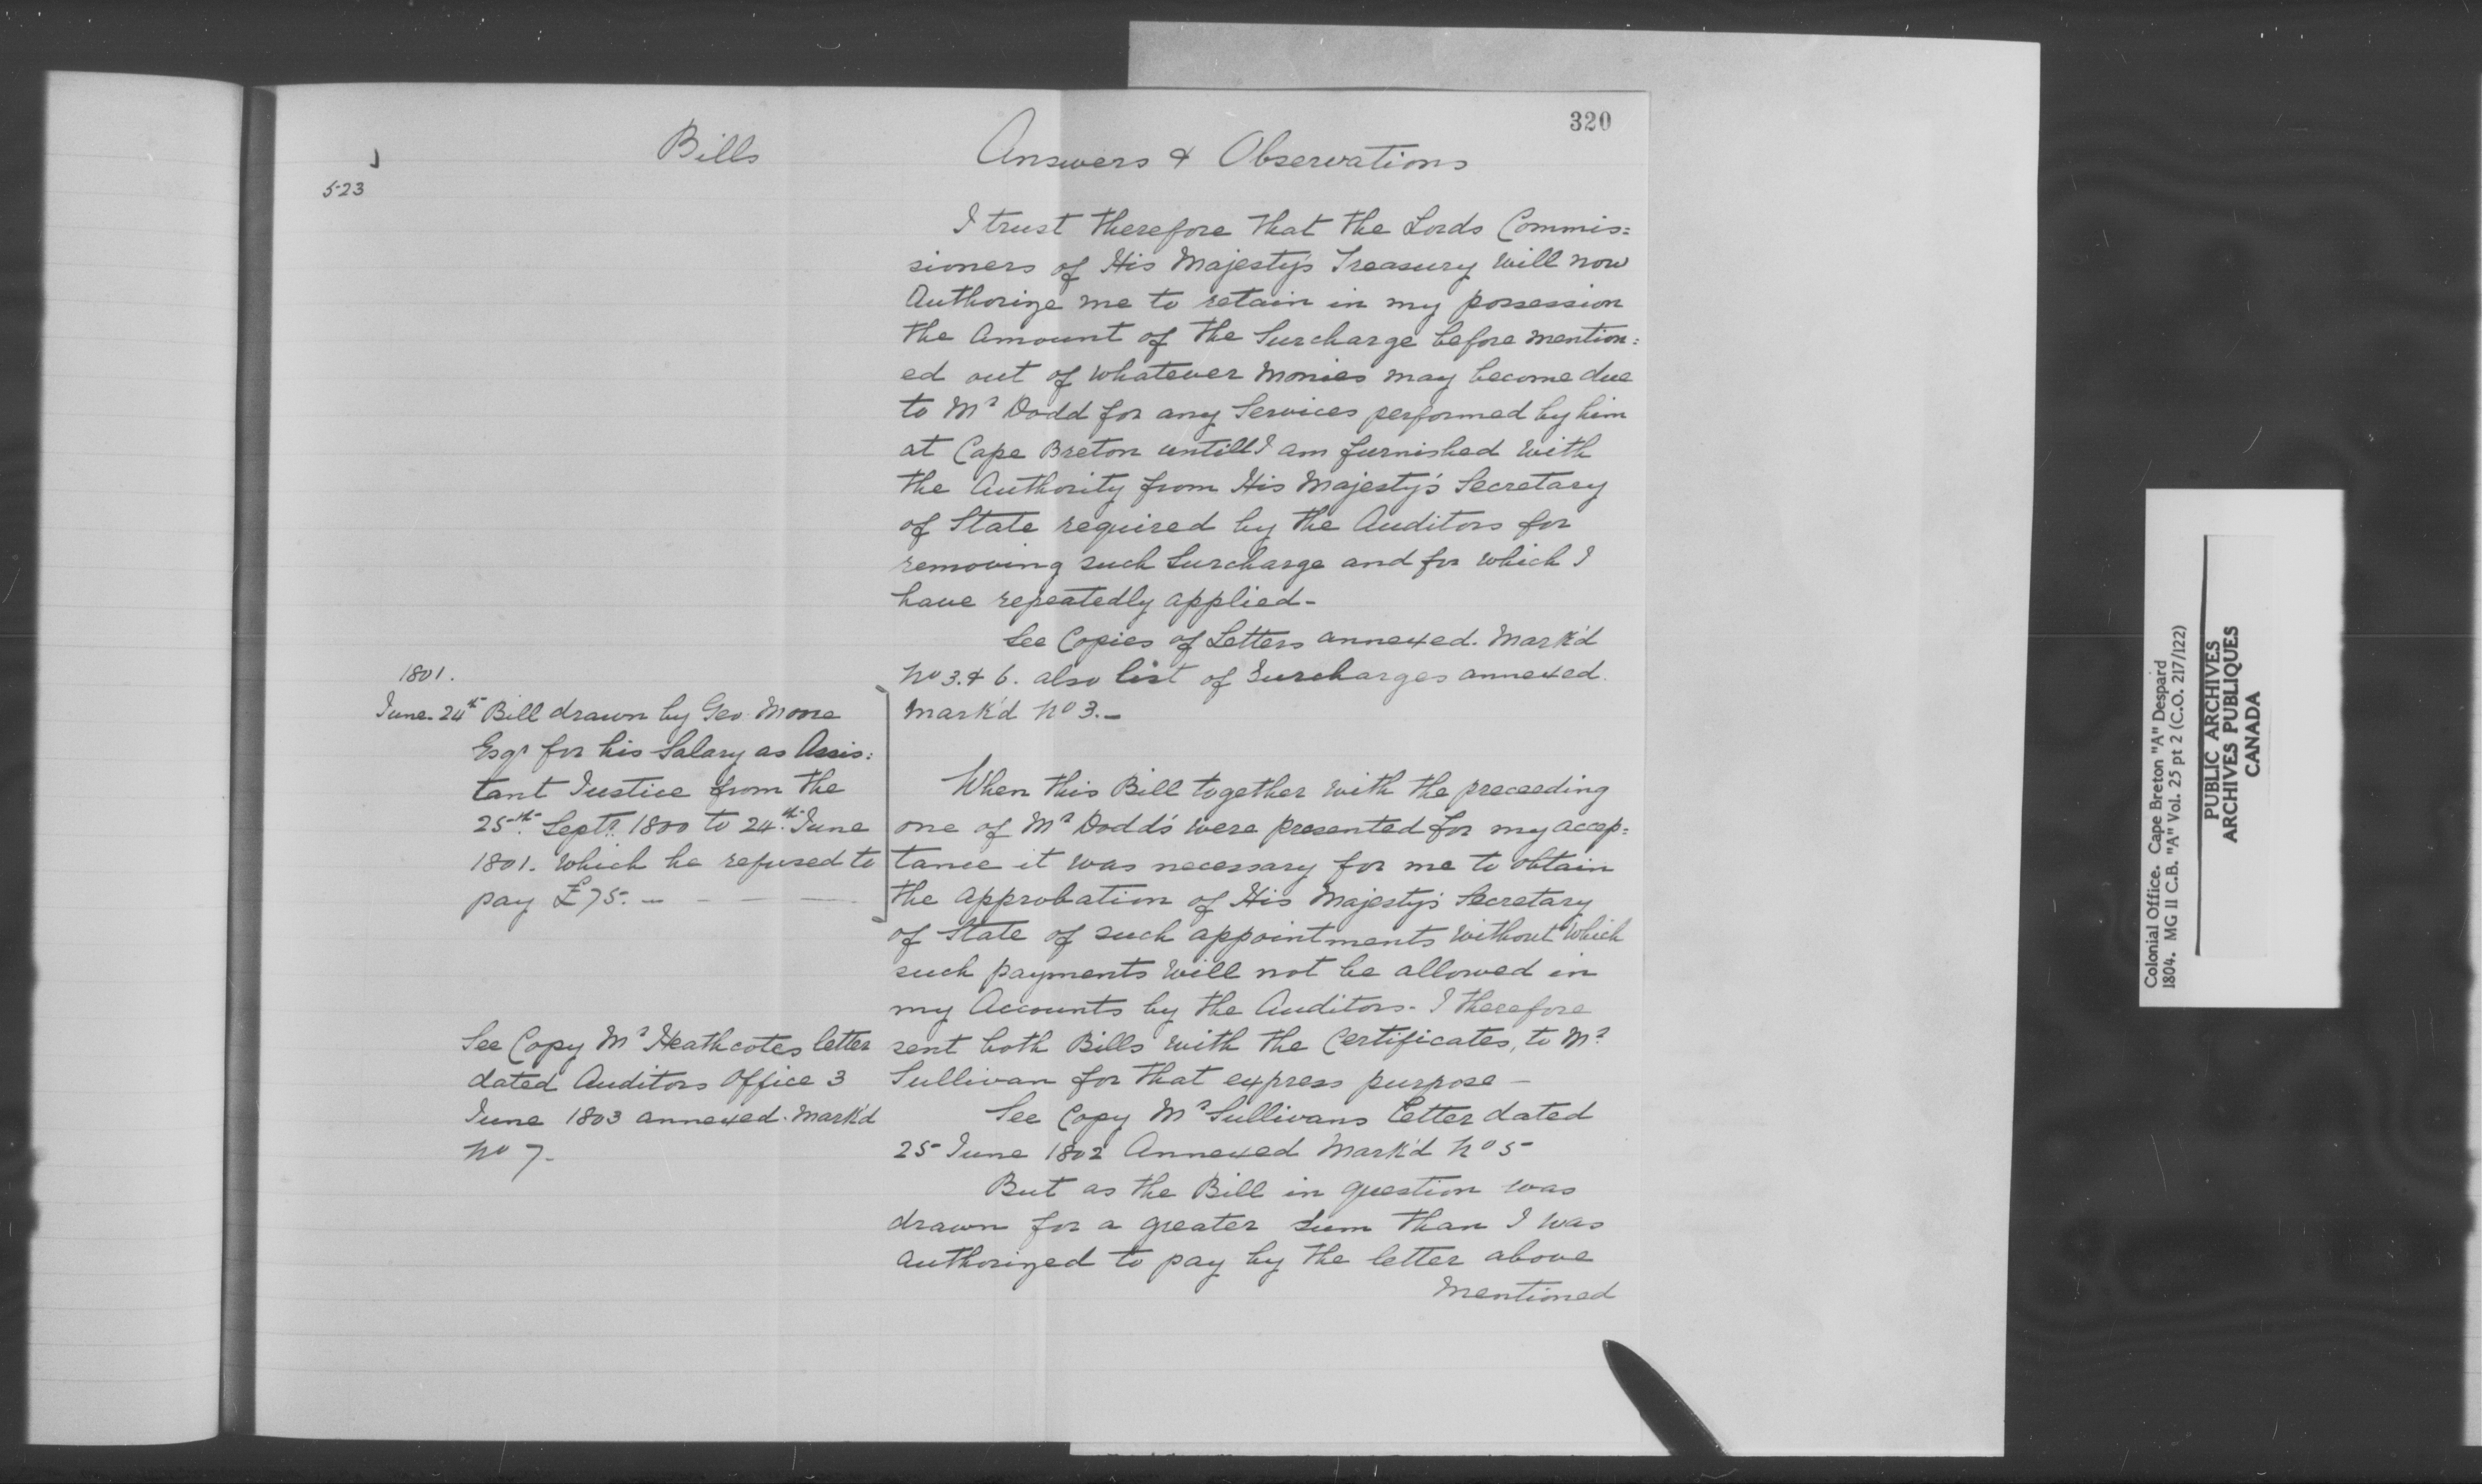 320
Bills
Answers & Observations
523
I trust therefore that the Lords Commis=
sioners of His Majesty's Treasury will now
Authorize me to retain in my possession
the Amount of the Surcharge before mention=
ed out of whatever Monies may become due
to Mr Dodd for any Services performed by him
at Cape Breton untill I am furnished with
the Authority from His Majesty's Secretary
of State required by the Auditors for
removing such Surcharge and for which I
have repeatedly applied-
See Copies of Letters annexed. Mark'd
No 3. & 6. also list of Surcharges annexed.
Mark'd No 3.-
1801.
June. 24th Bill drawn by Geo. Moore
Esqr for his Salary as Assis=
tant Justice from the
25th Septr. 1800 to 24th June
1801. which he refused to
pay £75. - - - -
When this Bill together with the preceeding
one of Mr Dodd's were presented for my accep=
tance it was necessary for me to obtain
the approbation of His Majesty's Secretary
of State of such appointments without which
such payments will not be allowed in
my Accounts by the Auditors- I therefore
sent both Bills with the Certificates, to Mr
Sullivan for that express purpose -
See Copy Mr Heathcotes letter
dated Auditors Office 3
June 1803 annexed. Mark'd
No 7-
See Copy Mr Sullivans Letter dated
25 June 1802 Annexed Mark'd No 5-
But as the Bill in question was
drawn for a greater Sum than I was
authorized to pay by the letter above
Mentioned
Colonial Office. Cape Breton "A" Despard
1804. MG 11 C.B. "A" Vol. 25 pt 2 (C.O. 217/122)
PUBLIC ARCHIVES
ARCHIVES PUBLIQUES
CANADA